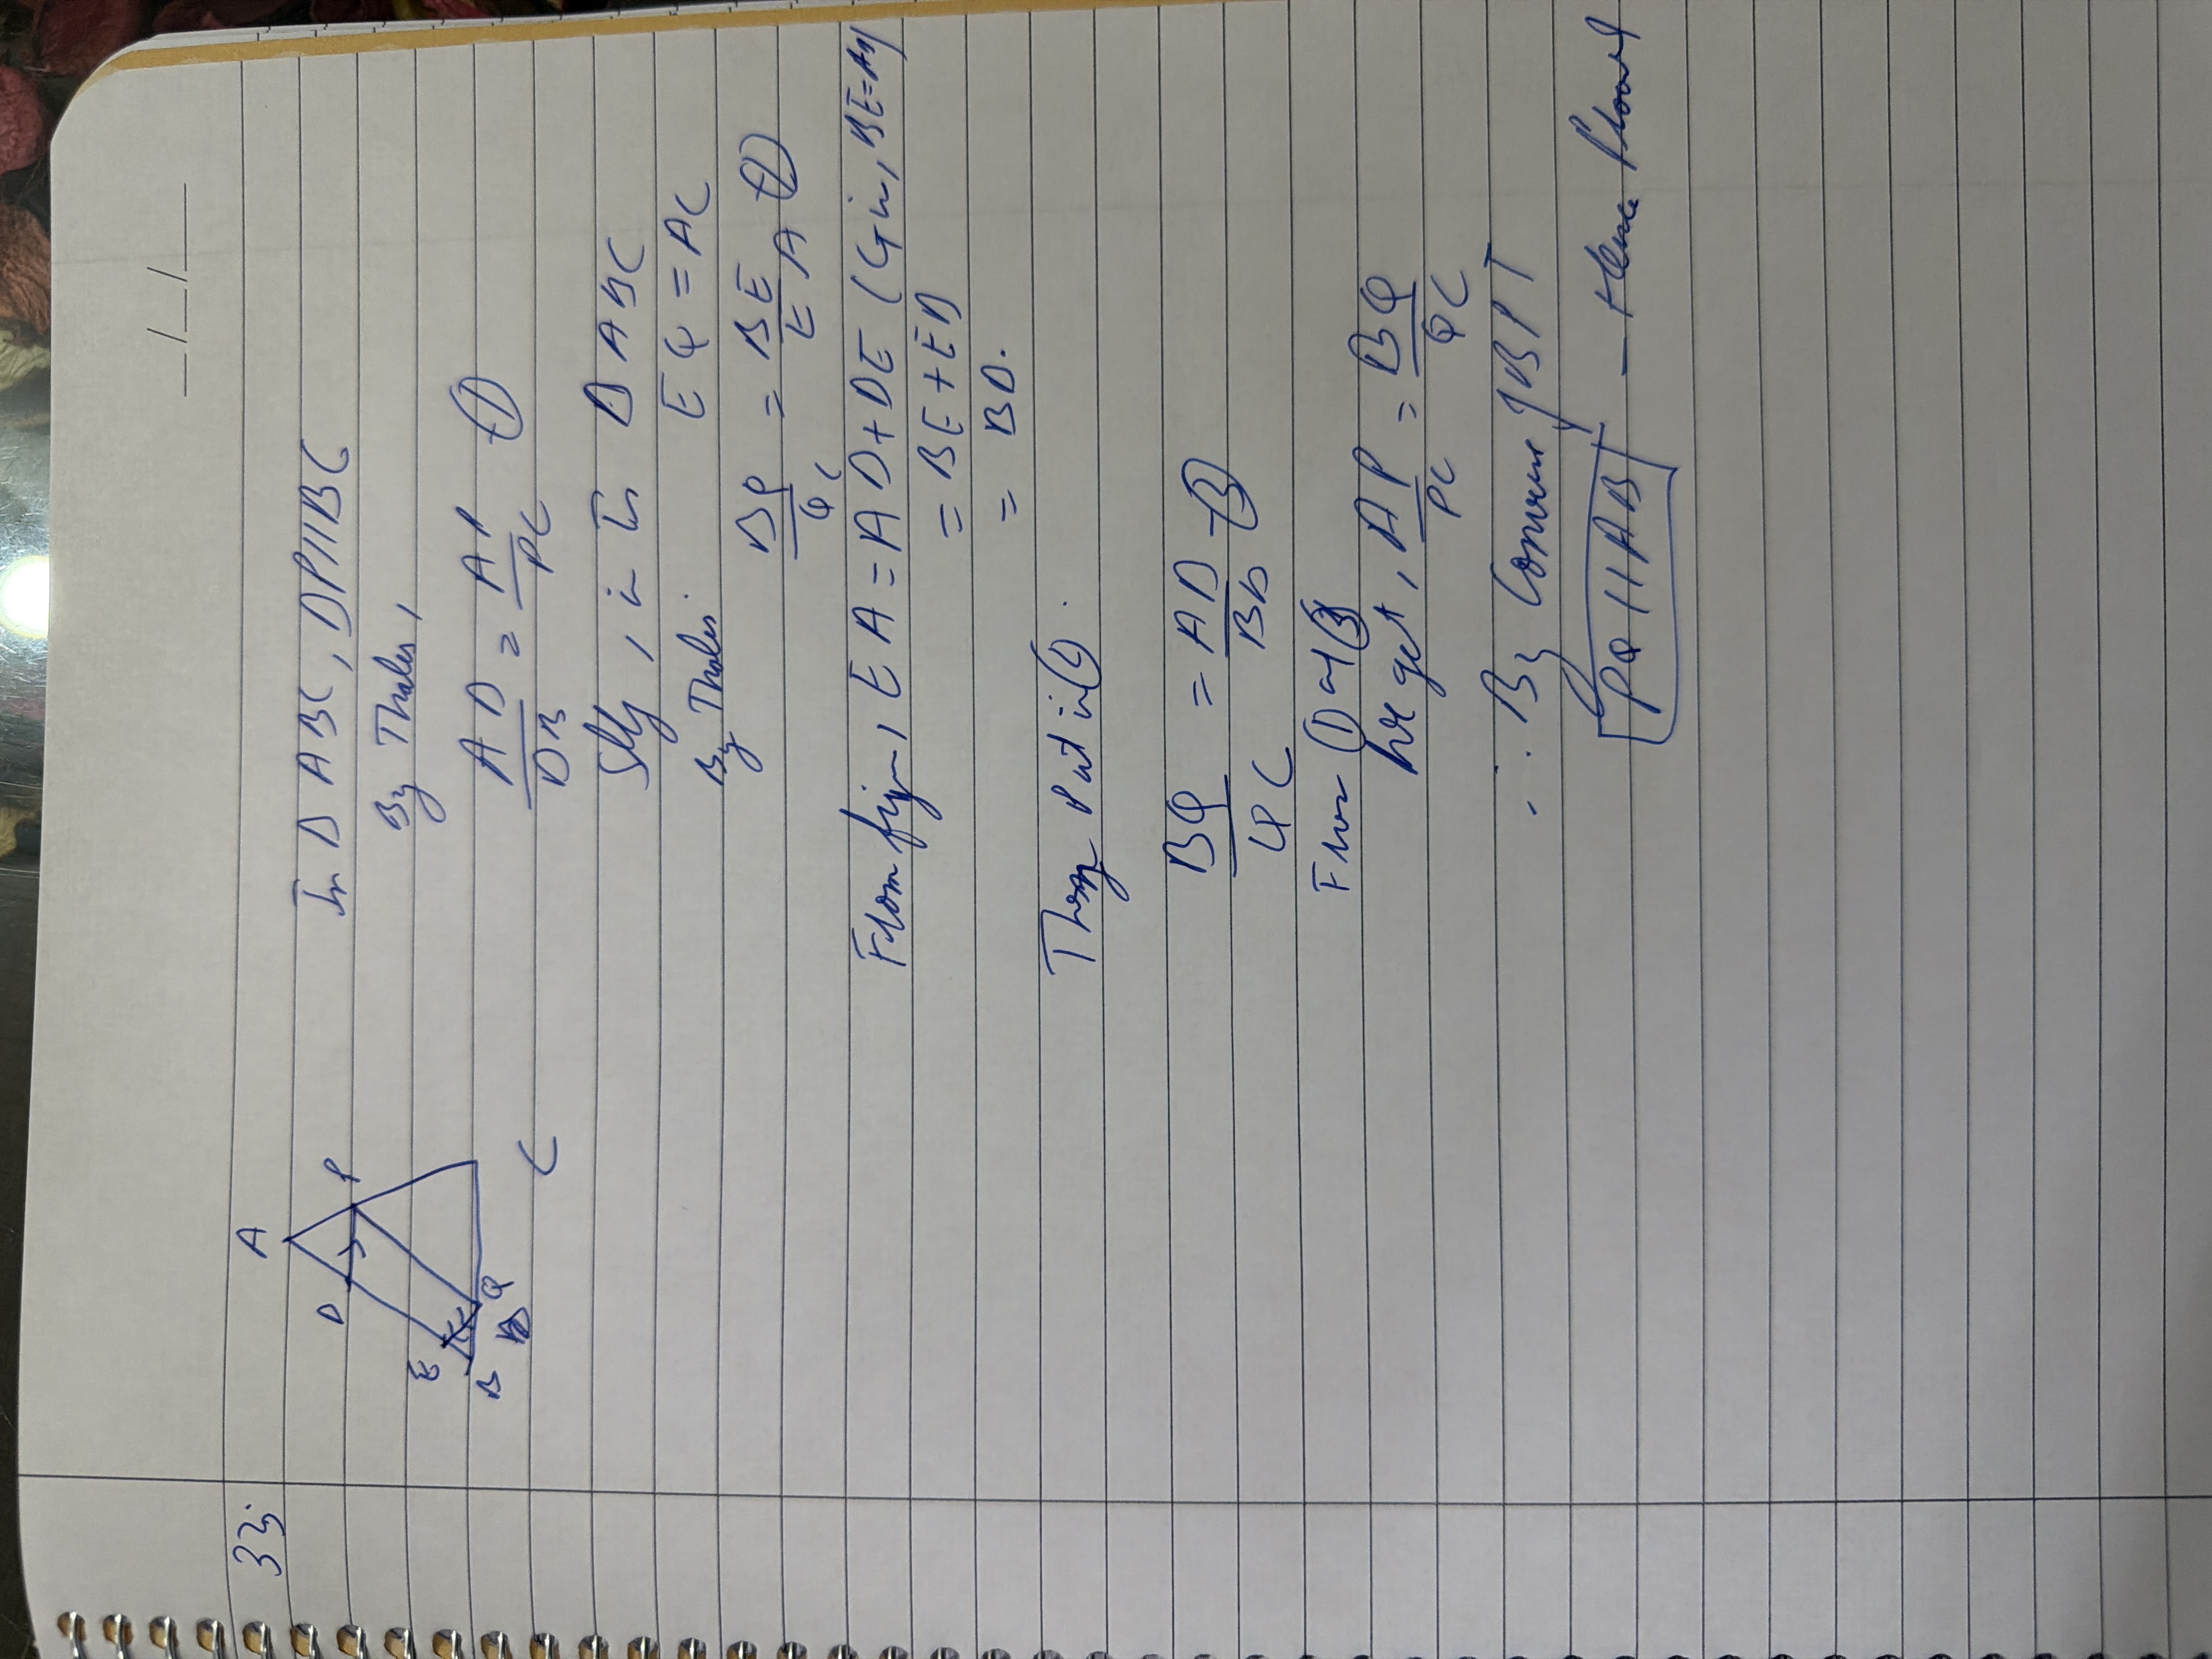 33.
A
D P
E
B Q C
In Δ ABC, DP||BC
By Thales,
AD/DB = AP/PC ①
Slly, in In Δ ABC
EQ = AC
By Thales.
BQ/QC = BE/EA ②
From fig, EA = AD + DE (Given, BE = AD)
= BE + ED
= BD.
Put in ②
BQ/QC = AD/BD - ③
From ① and ③
we get, AP/PC = BQ/QC
∴ By Converse of BPT
PQ || AB - Hence Proved